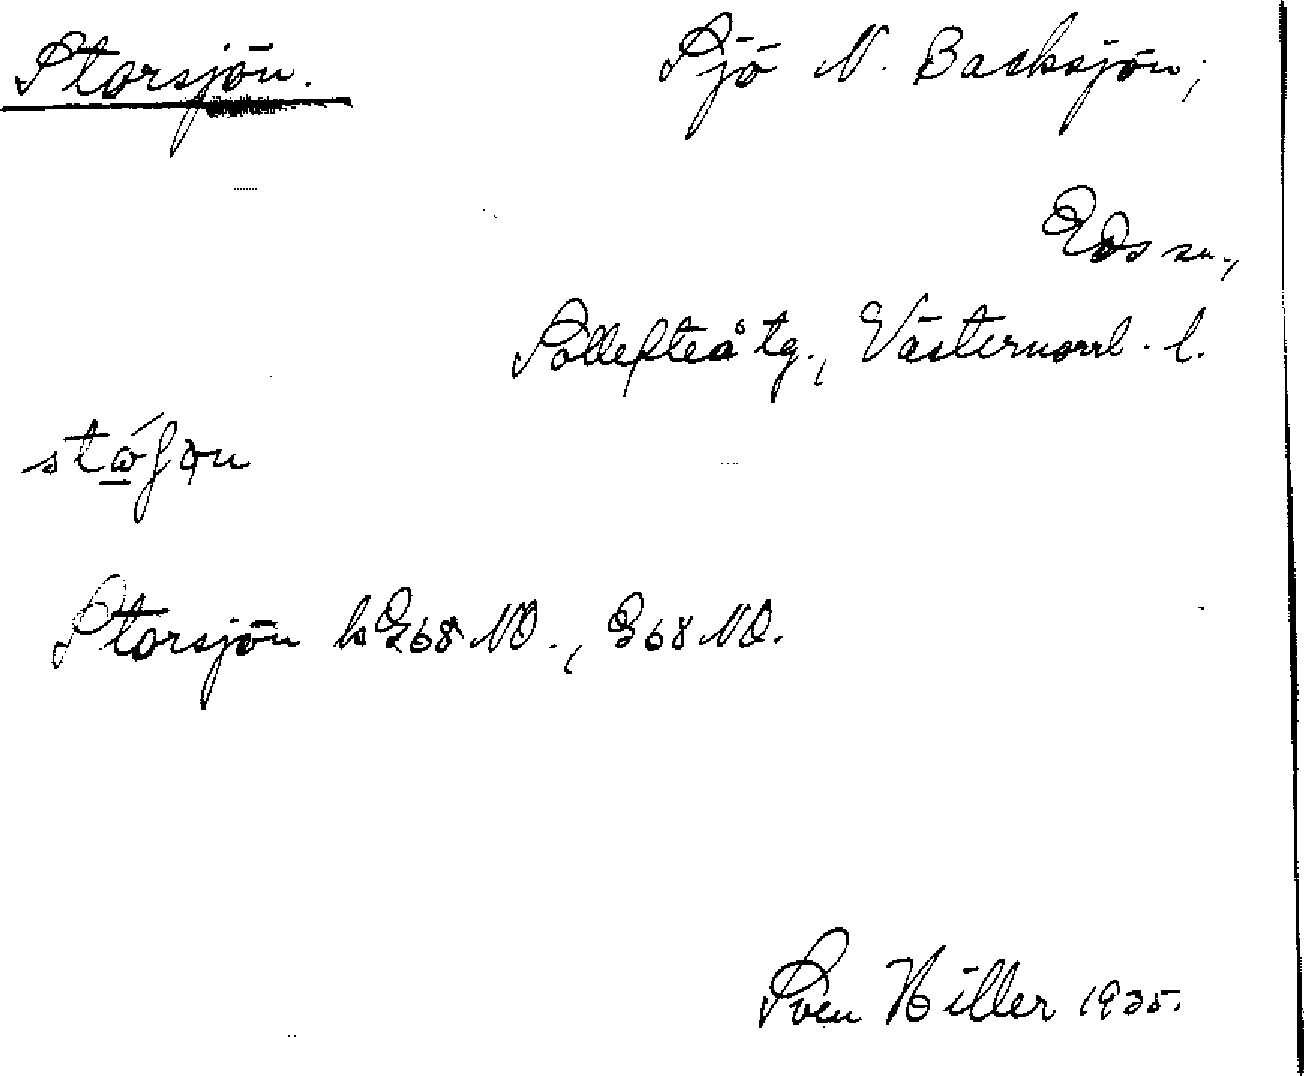 Storsjön.
Sjö N. Backsjön;
Eds sn.,
Sollefteå tg., Västernorrl. l.
Storsjön k 68 NO., G 68 NO.
Sven Hiller 1935.